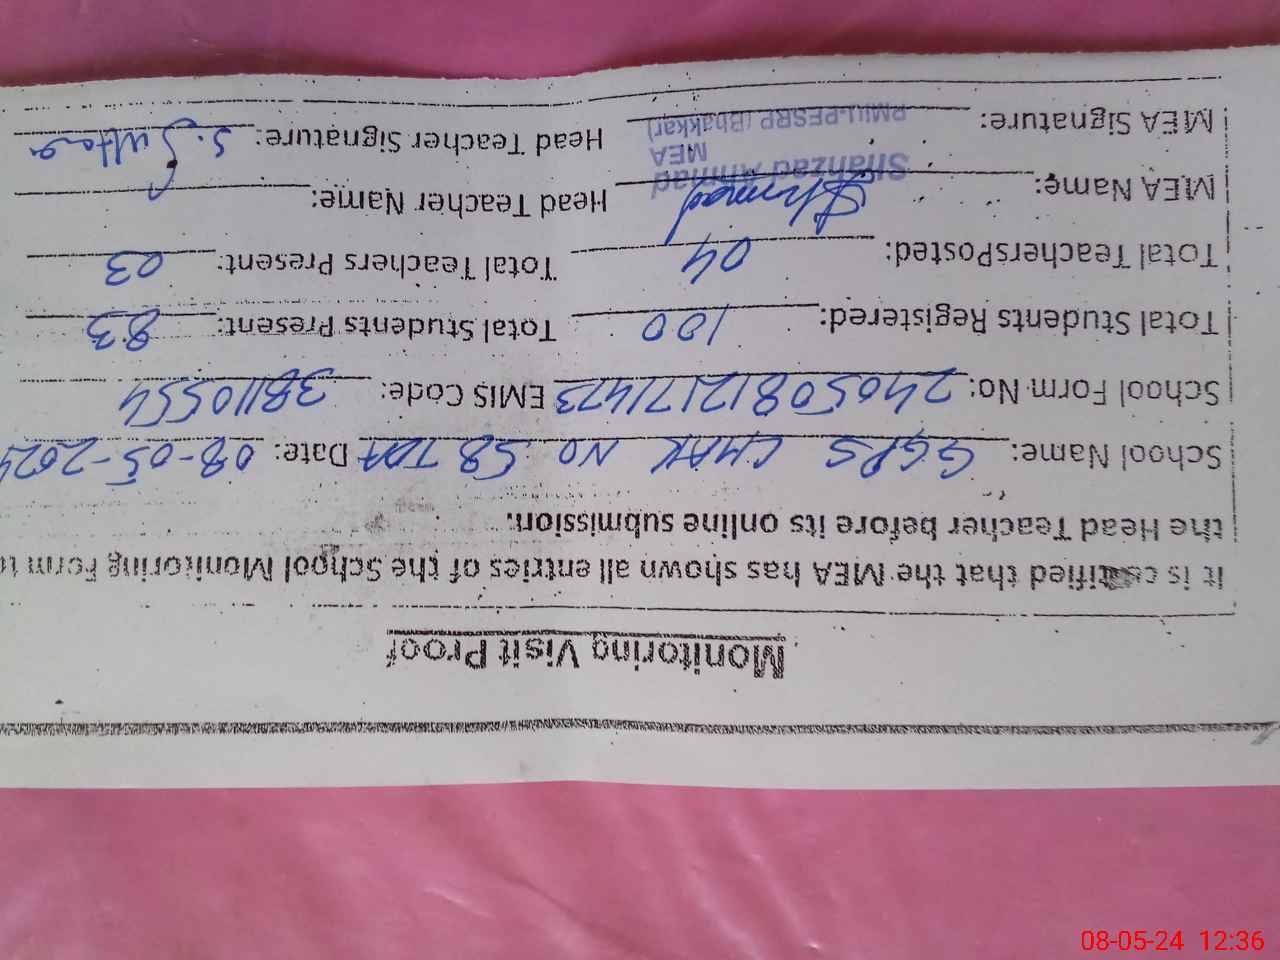 Monitoring Visit Proof
it is certified that the MEA has shown all entries of the School Monitoring Form to
the Head Teacher before its online submission.
School Name: GGPS CHAK NO 58 TDA Date: 08-05-2024
School Form No: 24050812171473 EMIS Code: 38110554
Total Students Registered: 100 Total Students Present: 83
Total TeachersPosted: 04 Total Teachers Present: 03
MEA Name: Head Teacher Name:
Ahmad
Shahzad Ahmad
MEA
PMIU-PESRP (Bhakkar)
MEA Signature: Head Teacher Signature: S. Sultana
08-05-24 12:36